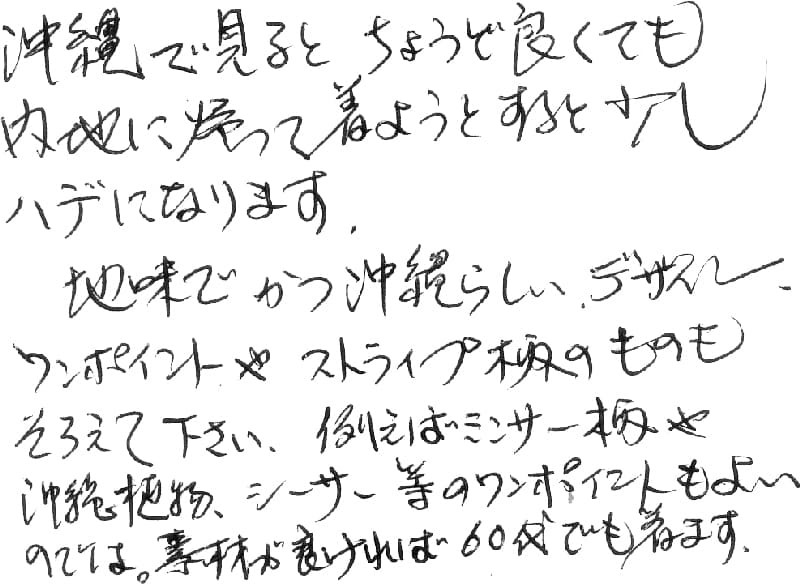 沖縄で見るとちょうど良くても
内地に帰って着ようとすると少し
ハデになります.
地味でかつ沖縄らしい、デザイン、
ワンポイントやストライプ柄のものも
そろえて下さい、例えばミンサー柄や
沖縄植物、シーサー等のワンポイントもよい
のでは。素材が良ければ60代でも着ます.